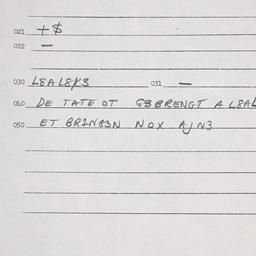 021 +$
022 —
030 L8AL8K3 031 —
040 DE TATE OT G3BRENGT A L8AL
050 ET BR2NG3N NOX AJN3